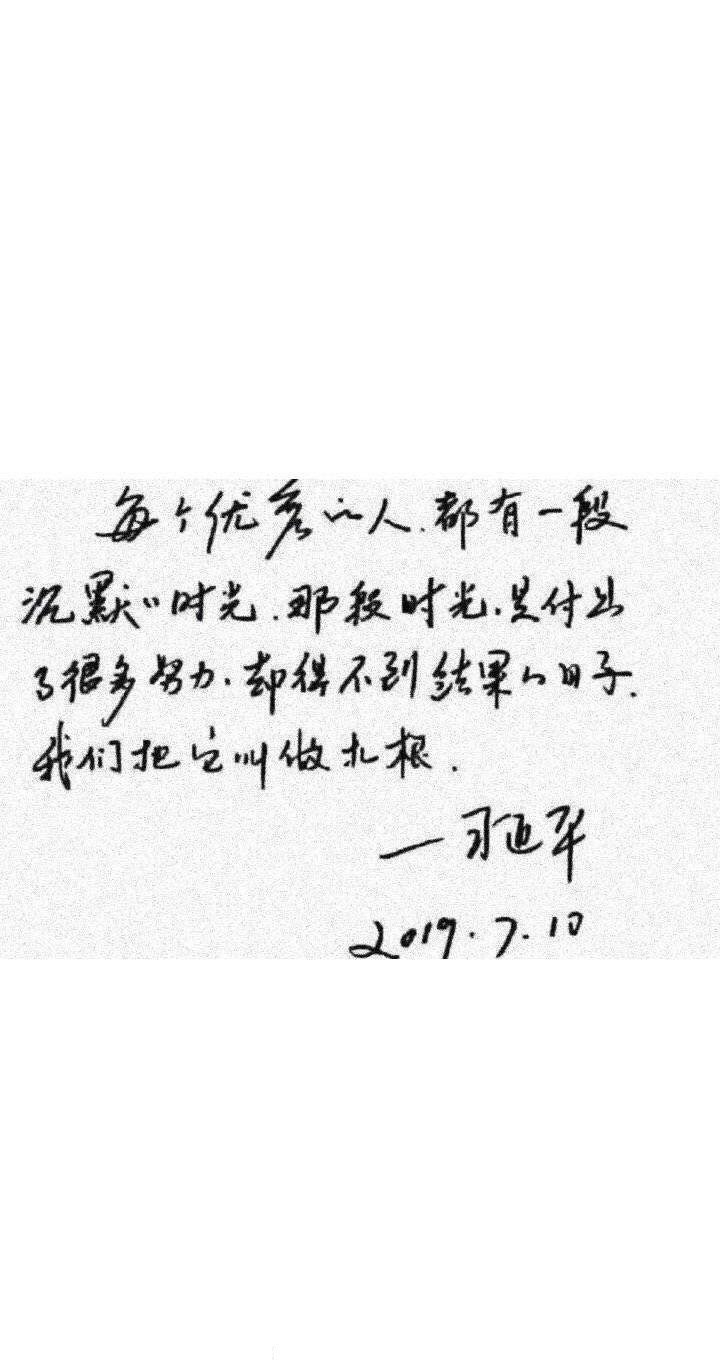 每个优秀的人.都有一段
沉默的时光.那段时光.是付出
了很多努力.却得不到结果的日子.
我们把它叫做扎根.
—习延平
2019.7.10